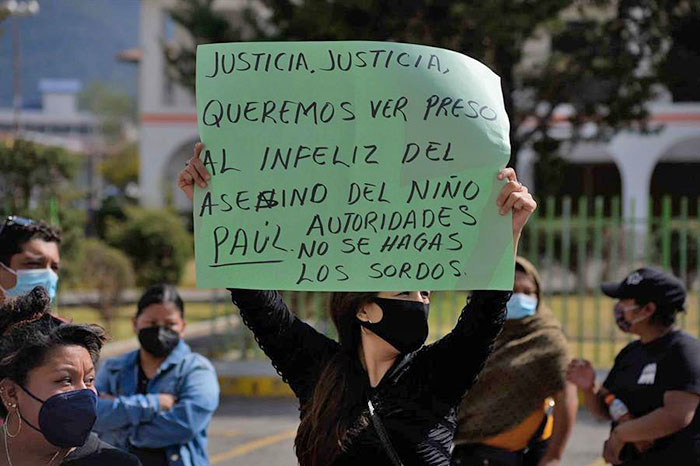 JUSTICIA, JUSTICIA,
QUEREMOS VER PRESO
AL INFELIZ DEL
ASESINO DEL NIÑO
PAÚL. AUTORIDADES
NO SE HAGAS
LOS SORDOS.